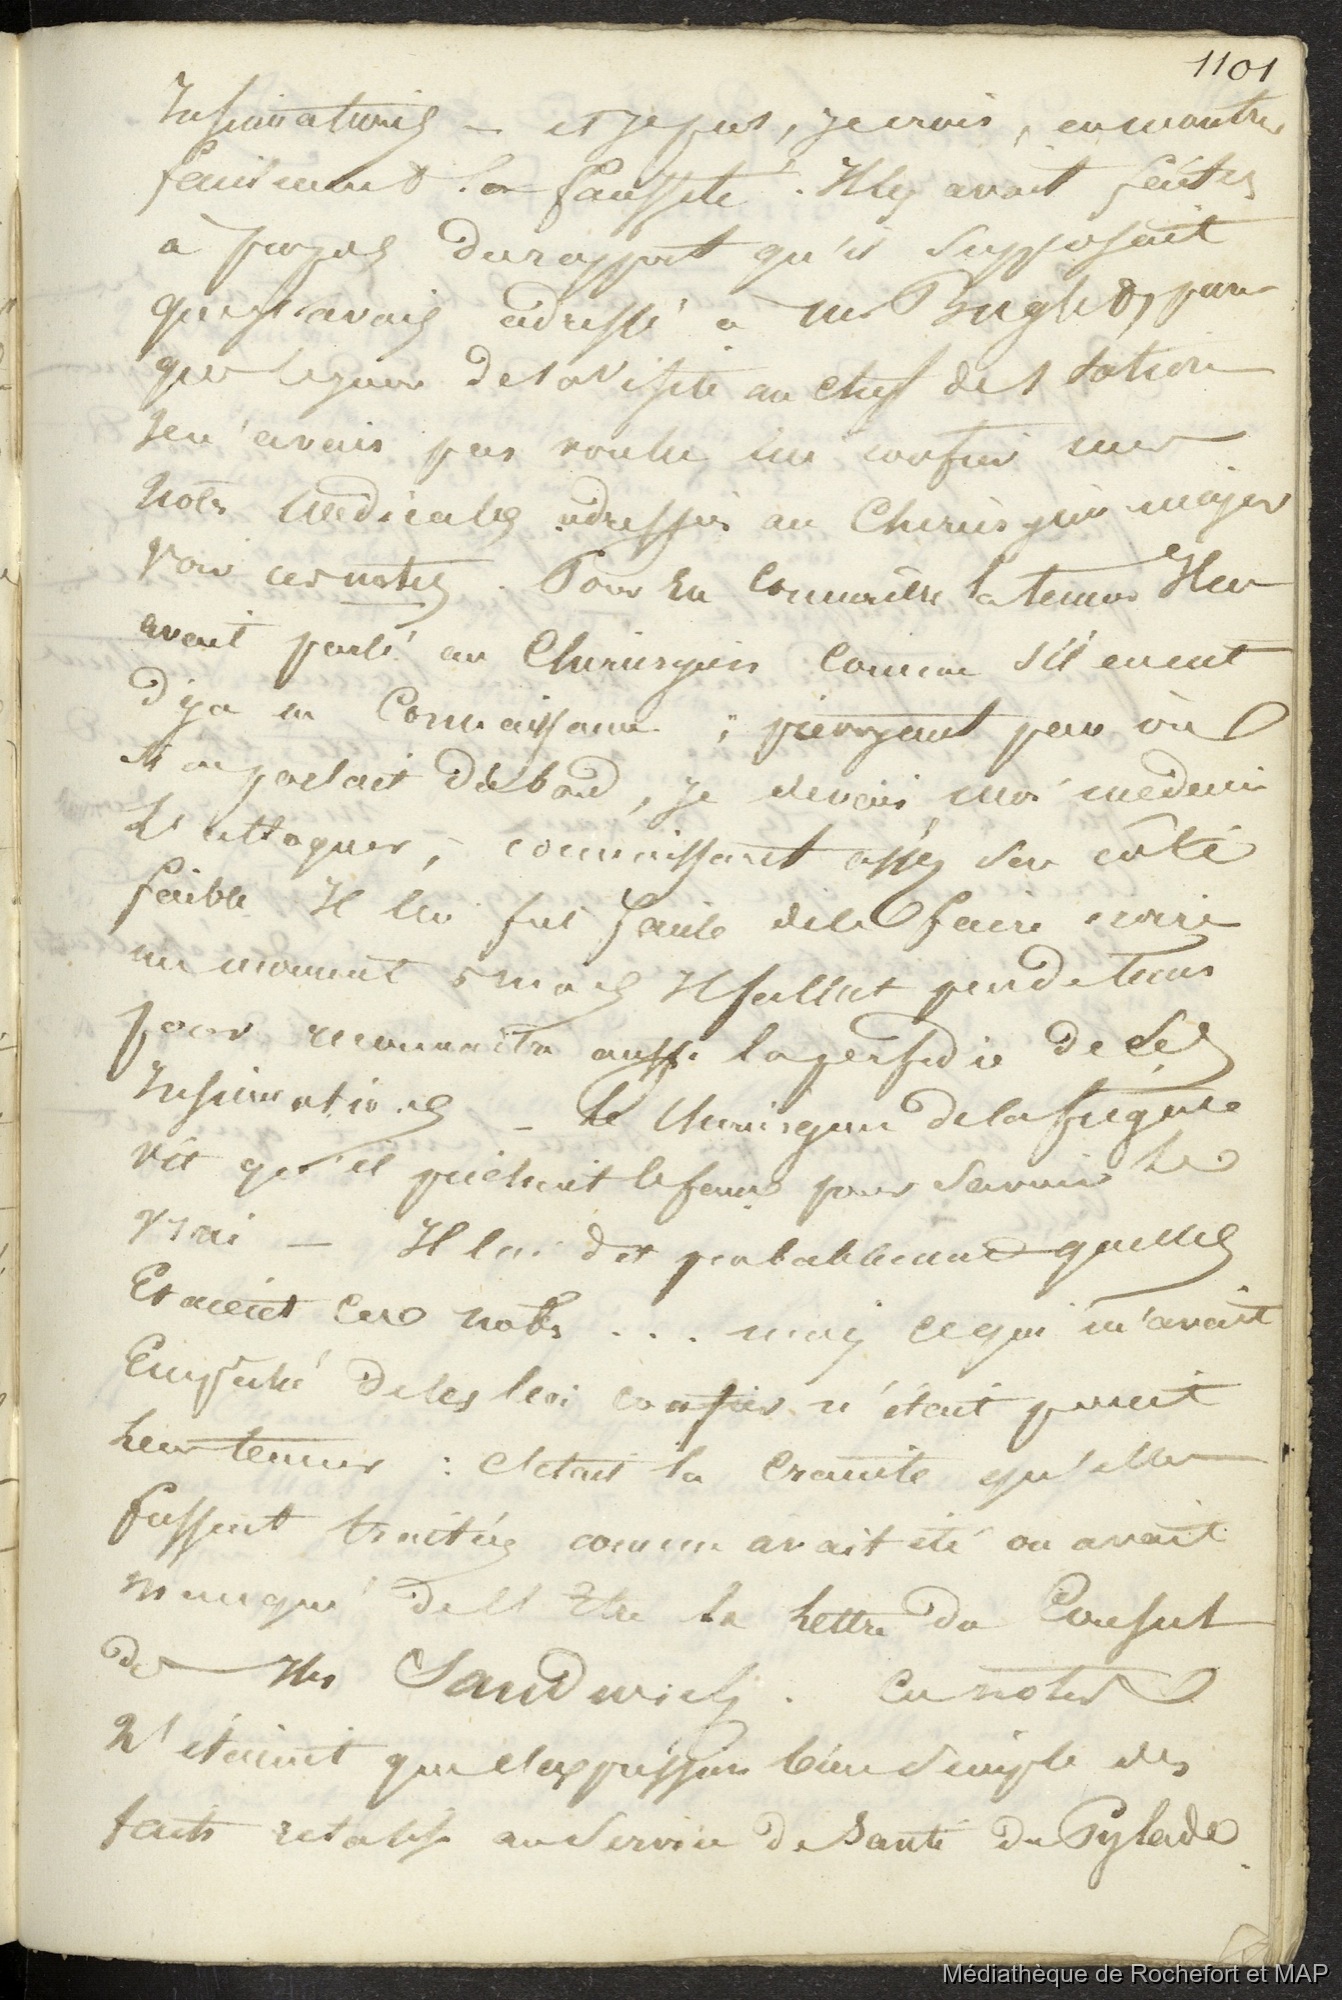 1101
Insinuations – et je pus, je crois, en montrer
facilement la fausseté. Il y avait feintes
à propos du rapport qu'il supposait
que j'avais adressé à Mr Buglet, parce
que le jour de la visite au chef de station
Je n'avais pas voulu lui confier mes
notes médicales adressées au Chirurgien major
voir ces notes. Pour en connaître la teneur Il en
avait parlé au Chirurgien comme s'il en eut
déja eu Connaissance ; par où
il m'en parlait d'abord, je devais, moi médecin
l'attaquer, – connaissant assez son côté
faible Il lui fut facile de le faire croire
un moment ; mais Il fallut peu de tems
pour reconnaitre aussi la perfidie de Ses
Insinuations – Le Chirurgien de la frégate
vit qu'il prêchait le faux pour savoir le
vrai – Il lui dit probablement quelles
Etaient ces notes ... mais ce qui m'avait
Empêché de les lui confier n'était point
leur teneur : c'était la crainte qu'elles
fussent traitées comme avait été ou avait
manqué de l'être la lettre du Consul
des Iles Sandwich. Ces notes
N'étaient que l'expression bien simple des
faits relatifs au Service de Santé du Pylade
Médiathèque de Rochefort et MAP